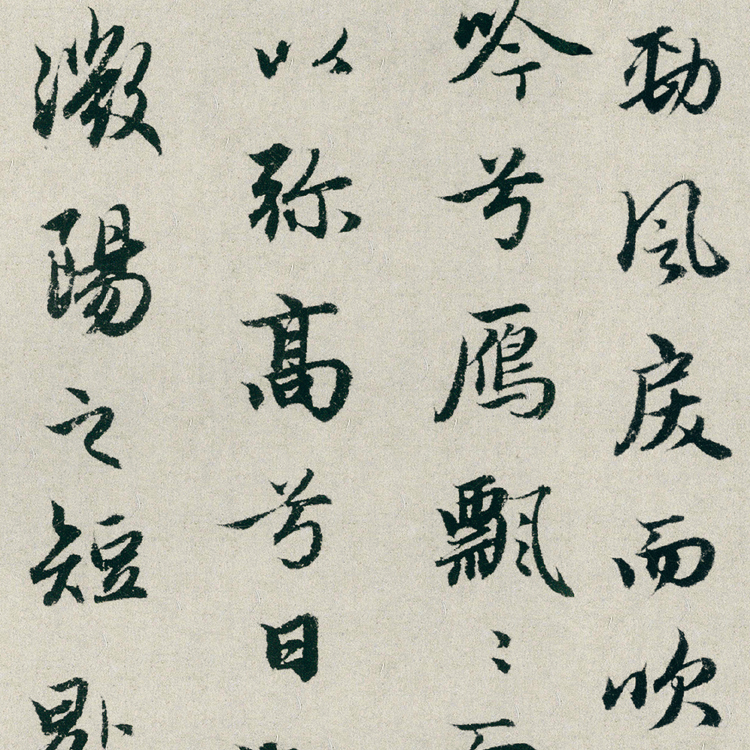 勁風戾而吹
吟兮鴈飄〻而
以弥高兮日
微陽之短晷